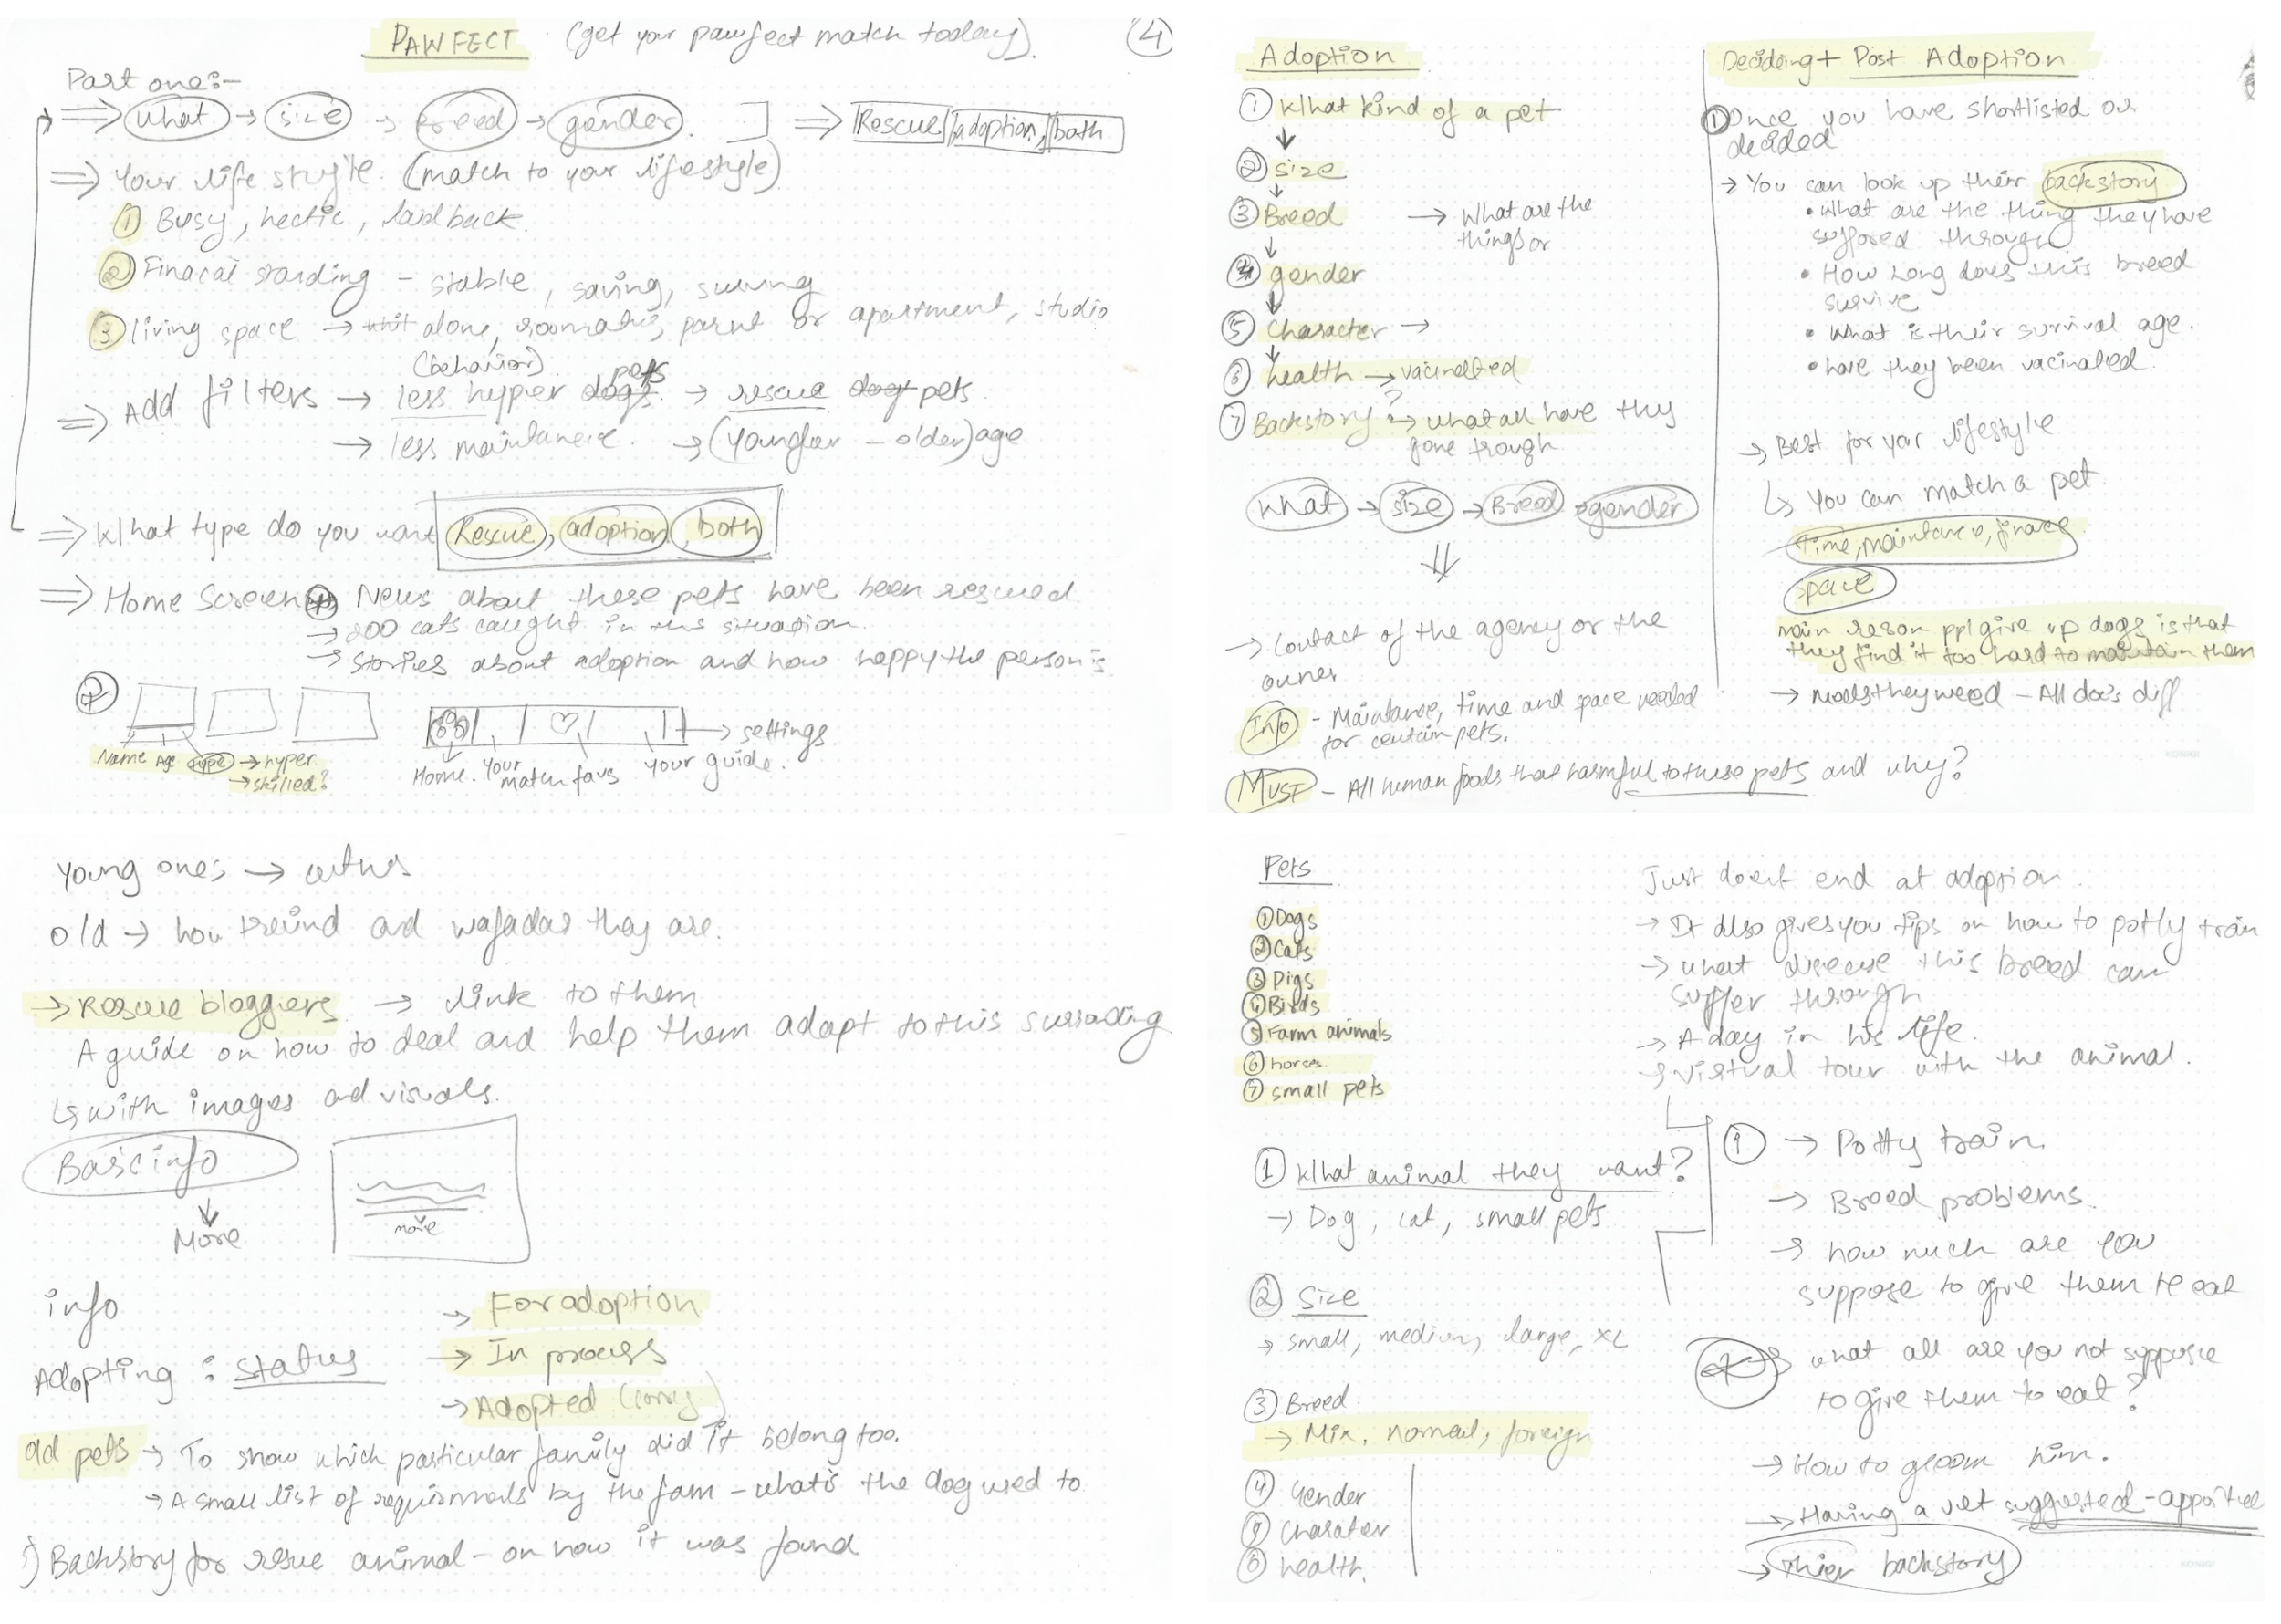 PAWFECT (get your pawfect match today). 4
Part one:-
⇒ what → size → breed → gender. ⇒ Rescue adoption, both
⇒ Your life style. (match to your lifestyle)
① Busy, hectic, laid back.
② Finacal standing - stable, saving,
③ living space → alone, roomates, parnt or apartment, studio
(behavior) pets
⇒ Add filters → less hyper dogs. → rescue dog pets.
→ less maintanence. → (Younger - older) age
⇒ What type do you want Rescue, adoption, both
⇒ Home Screen → News about these pets have been rescued
→ 200 cats caught in this situation.
→ stories about adoption and how happy the person is
Name Age type → hyper
→ skilled?
→ settings
Home. Your match favs your guide.
Adoption
① What kind of a pet
② size
③ Breed → What are the
things or
④ gender
⑤ Character →
⑥ health → vacinated
⑦ Backstory ? → what all have they
gone trough
What → size → Breed → gender
→ Contact of the agency or the
owner
Info - Maintance, time and space needed
for certain pets.
MUST - All human foods that harmful to these pets and why?
Deciding + Post Adoption
① Once you have shortlisted or
decided
→ You can look up their backstory
• What are the thing they have
suffored through
• How long does this breed
survive
• What is their survival age.
• have they been vacinated.
→ Best for your lifestyle
↳ You can match a pet
time, maintance, finace
space
main reson ppl give up dogs is that
they find it too hard to maintain them
→ - All docs diff
KOKUYO
Young ones →
Old → how and wafadar they are.
→ Rescue bloggers → link to them
A guide on how to deal and help them adapt to this
↳ with images and visuals.
Basic info
↓
More
more
info
Adopting : status
→ For adoption
→ In process
→ Adopted
Old pets → To show which particular family did it belong too.
→ A small list of requirments by the fam - what's the dog used to
Backstory for resue animal - on how it was found
Pets
① Dogs
② Cats
③ Pigs
④ Birds
⑤ Farm animals
⑥ horses
⑦ small pets
① What animal they want?
→ Dog, cat, small pets
② Size
→ small, medium, large, XL
③ Breed.
→ Mix, normal, foreign
④ Gender
⑤ Charater
⑥ health.
Just doent end at adoption.
→ It also gives you tips on how to potty train
→ what disease this breed can
suffer through
→ A day in his life.
→ Virtual tour with the animal.
① → Potty train.
→ Breed problems.
→ how much are you
suppose to give them to eat
→ what all are you not suppose
to give them to eat?
→ How to groom him.
→ Having a vet suggested -
→ Thier backstory
KOKUYO